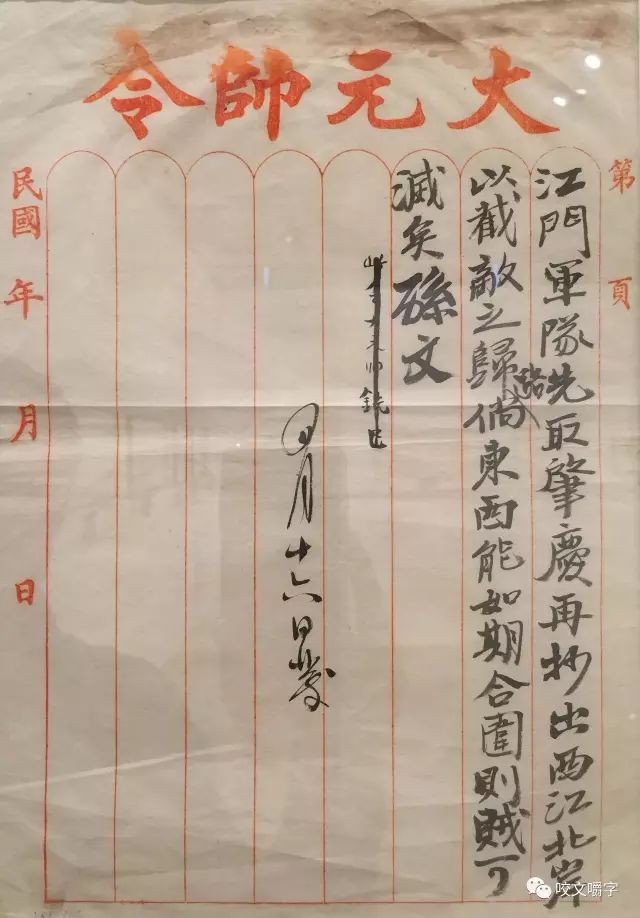 大元帥令
第 頁
江門軍隊先取肇慶再抄出西江北岸
以截敵之歸路倘東西能如期合圍則賊可
滅矣孫文
四月十六日發
民國 年 月 日
咬文嚼字